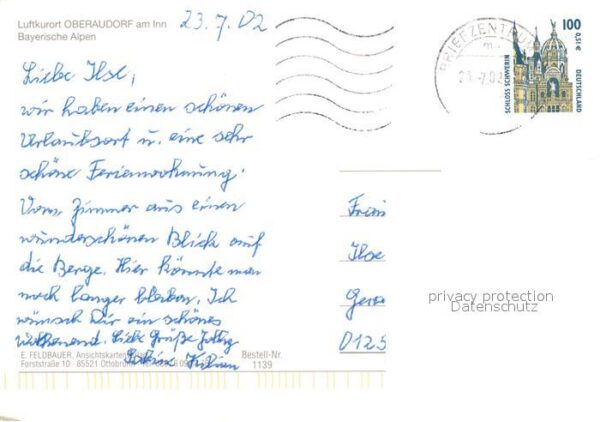 Luftkurort OBERAUDORF am Inn
Bayerische Alpen
23.7.02
Liebe Ilse,
wir haben einen schönen
Urlaubsort u. eine sehr
schöne Ferienwohnung.
Vom Zimmer aus einen
wunderschönen Blick auf
die Berge. Hier könnte man
noch langer bleiben. Ich
wünsch Dir ein schönes
Liebe Grüße
E. FELDBAUER, Ansichtskarten
Forststraße 10 - 85521 Ottobrunn
Bestell-Nr.
1139
BRIEFZENTRUM
100
0,51€
DEUTSCHLAND
SCHLOSS SCHWERIN
Ilse
privacy protection
Datenschutz